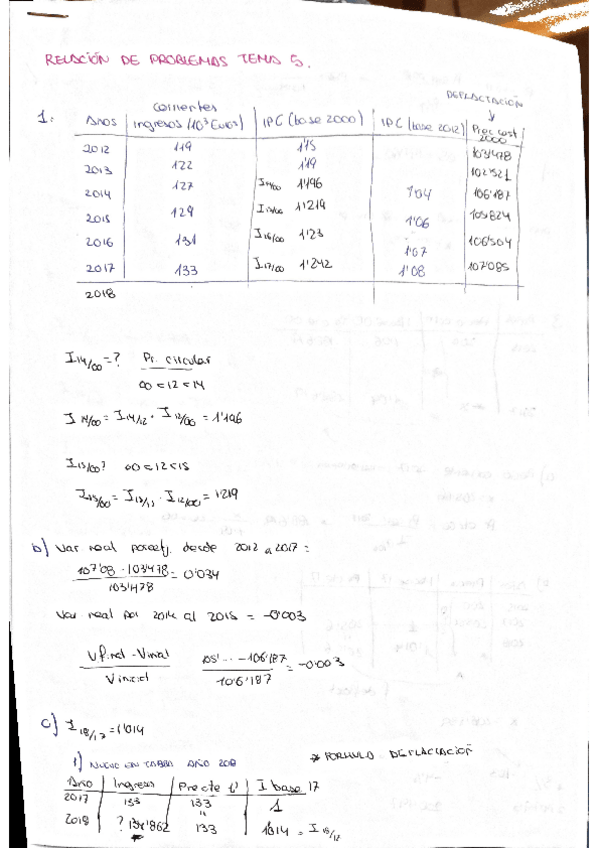 RELACIÓN DE PROBLEMAS TEMA 5.
DEFLACTACIÓN
1: Años | corrientes Ingresos (10³ Euros) | IPC (base 2000) | IPC (base 2012) | Prec cost 2000
2012 119 1'15 103'478
2013 122 1'19 102'521
2014 127 I14/00 1'196 1'04 106'187
2015 129 1'219 1'06 105'824
2016 131 I16/00 1'23 1'07 106'504
2017 133 I17/00 1'242 1'08 107'085
2018
I14/00 = ? Pr. circular
00 < 12 < 14
I 14/00 = I14/12 · I12/00 = 1'196
I15/00? 00 < 12 < 15
· I12/00 = 1'219
b) Var real porcetj. desde 2012 a 2017 =
107'08 - 103'478 / 103'478 = 0'034
Var real por 2014 al 2015 = -0'003
Vfinal - Vinicial / Vinicial
105'... - 106'187 / 106'187 = -0'003
c) I18/17 = 1'014
1) NUEVO EN TABLA AÑO 2018
* FORMULA DEFLACTACIÓN
Año | Ingresos | Pr cte 17 | I base 17
2017 133 133 1
2018 ? 133 1'014 =